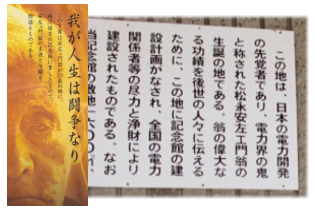 我が人生は闘争なり
この地は、日本の電力開発
の先覚者であり、電力界の鬼
と称された松永安左エ門翁の
生誕の地である。翁の偉大な
る功績を後世の人々に伝える
ために、この地に記念館の建
設計画がなされ、全国の電力
関係者等の尽力と浄財により
建設されたものである。なお
当記念館の敷地一六〇〇㎡、